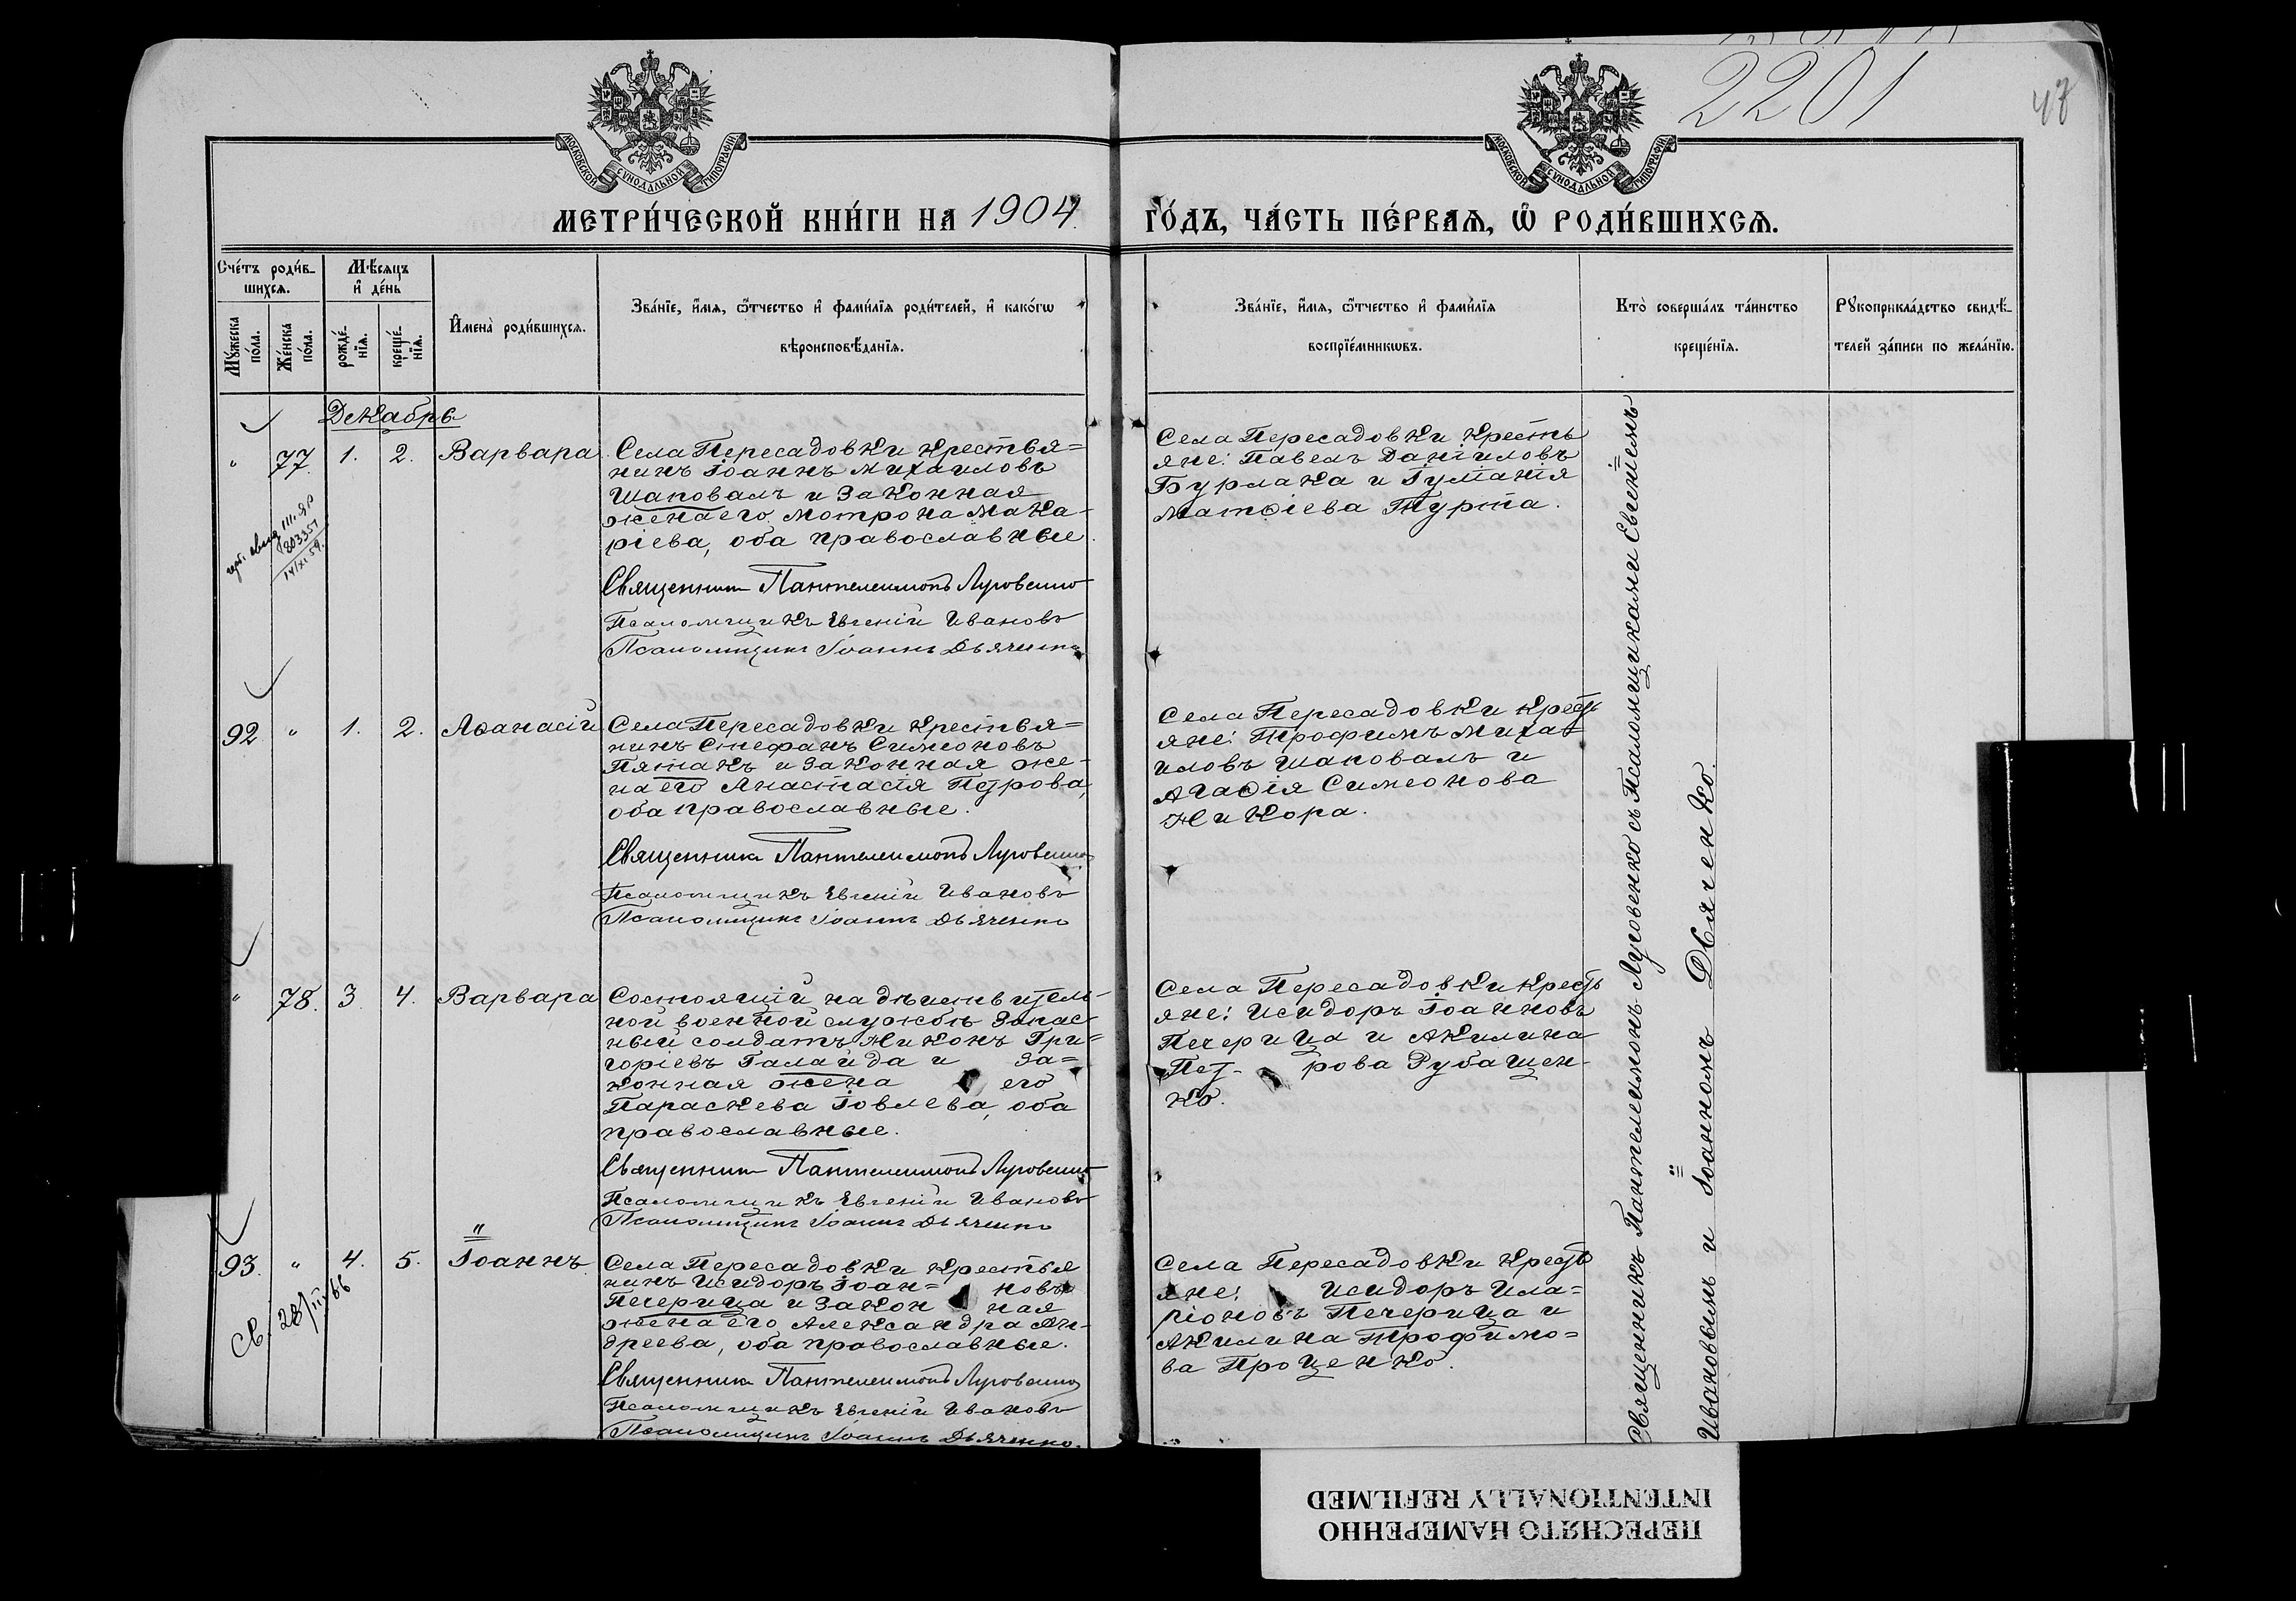 2201
47
МОСКОВСКОЙ СѴНОДАЛЬНОЙ ТИПОГРАФІИ
МОСКОВСКОЙ СѴНОДАЛЬНОЙ ТИПОГРАФІИ
МЕТРИ́ЧЕСКОЙ КНИ́ГИ НА 1904
ГО́ДЪ, ЧА́СТЬ ПЕ́РВАѦ, Ѡ РОДИ́ВШИХСѦ.
Сче́тъ роди́в-
шихсѧ.
Мѣ́сѧцъ
и҆ де́нь
Мꙋ́жеска
по́ла.
Же́нска
по́ла.
рожде́-
нїѧ.
креще́-
нїѧ.
И҆мена̀ роди́вшихсѧ.
Зва́нїе, и҆́мѧ, ѻ҆́тчество и҆ фами́лїѧ роди́телей, и҆ како́гѡ
вѣроисповѣ́данїѧ.
Зва́нїе, и҆́мѧ, ѻ҆́тчество и҆ фами́лїѧ
воспрїе́мникѡвъ.
Кто̀ соверша́лъ та́инство
креще́нїѧ.
Рꙋкоприкла́дство свидѣ́-
телей за́писи по жела́нїю.
Декабрь
" 77. 1. 2. Варвара
Села Пересадовки крестья=
нинъ Іоаннъ Михаиловъ
Шаповалъ и законная
жена его Мотрона Мака-
ріева, оба православные.
Священникъ Пантелеимонъ Луговенко
Псаломщикъ Евгеній Ивановъ
Псаломщикъ Іоаннъ Дьяченко
Села Пересадовки кресть
яне: Павелъ Даніиловъ
Бурлака и Гуліанія
Матѳіева Турта.
803351
14/XI.59.
92 " 1. 2. Аѳанасій
Села Пересадовки крестья=
нинъ Стефанъ Симеоновъ
Пятакъ и законная же-
на его Анастасія Петрова,
оба православные.
Священникъ Пантелеимонъ Луговенко
Псаломщикъ Евгеній Ивановъ
Псаломщикъ Іоаннъ Дьяченко
Села Пересадовки кресть
яне: Трофимъ Миха-
иловъ Шаповалъ и
Агафія Симеонова
Никора.
" 78. 3. 4. Варвара
Состоящій на дѣйствитель-
ной военной службѣ запас-
ный солдатъ Никонъ Гри=
горіевъ Галайда и за=
конная жена его
Параскева Іовлева, оба
православные.
Священникъ Пантелеимонъ Луговенко
Псаломщикъ Евгеній Ивановъ
Псаломщикъ Іоаннъ Дьяченко
Села Пересадовки кресть
яне: Исидоръ Іоанновъ
Печерица и Акилина
Пет- рова Рубащен-
ко.
93. " 4. 5. Іоаннъ
Села Пересадовки крестья
нинъ Исидоръ Іоан= новъ
Печерица и закон ная
жена его Александра Ан-
дреева, оба православные.
Священникъ Пантелеимонъ Луговенко
Псаломщикъ Евгеній Ивановъ
Псаломщикъ Іоаннъ Дьяченко.
Села Пересадовки кресть
яне: Исидоръ Ила=
ріоновъ Печерица и
Акилина Трофимо=
ва Проценко.
св. 28/III 66
Священникъ Пантелеимонъ Луговенко съ Псаломщиками Евгеніемъ
Ивановымъ и Іоанномъ Дьяченко.
ПЕРЕСНЯТО НАМЕРЕННО
INTENTIONALLY REFILMED